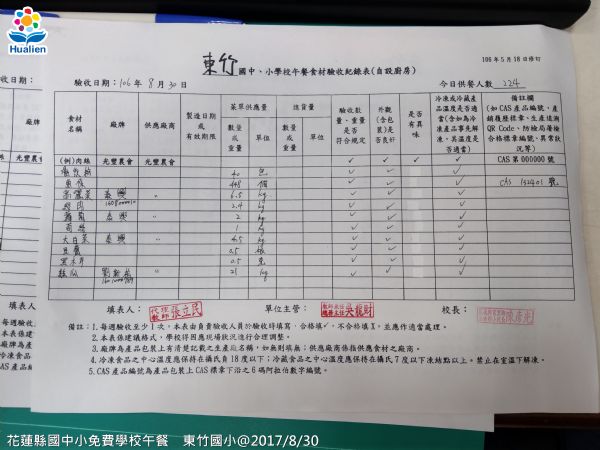 Hualien
106年5月18日修訂
東竹國中、小學校午餐食材驗收紀錄表(自設廚房)
驗收日期：106年8月30日
今日供餐人數 224
食材名稱 廠牌 供應廠商 製造日期或有效期限 菜單供應量 進貨量 驗收數量、重量是否符合規定 外觀(含包裝)是否良好 是否有異味 冷凍或冷藏產品溫度是否適當(如為冷凍產品事先解凍,其溫度是否適當) 備註欄(如CAS產品編號、產銷履歷標章、生產追溯QR Code、防檢局屠檢合格標章編號、異常狀況等)
數量或重量 單位 數量或重量 單位
(例)肉絲 光豐農會 光豐農會 ✓ ✓ ✓ ✓ CAS第000000號
40 包 ✓ ✓ ✓
448 個 ✓ ✓ ✓ CAS 132401號
高麗菜 泰興 〃 6.5 kg ✓ ✓ ✓
絞肉 2.4 kg ✓ ✓ ✓
泰興 〃 2 kg ✓ ✓ ✓
1 kg ✓ ✓ ✓
大白菜 泰興 〃 4.5 kg ✓ ✓ ✓
豆薯 0.5 ✓ ✓ ✓
黑木耳 0.5 ✓ ✓ ✓
絲瓜 〃 21 kg ✓ ✓ ✓
填表人： 代理教師 張立民
單位主管：
校長：
備註：1.每週驗收至少1次，本表由負責驗收人員於驗收時填寫，合格填✓，不合格填X，並應作適當處理。
2.本表係建議格式，學校得因應現場狀況進行合理調整。
3.廠牌為產品包裝上有清楚記載之生產廠名稱，如無則填無；供應廠商係指供應食材之廠商。
4.冷凍食品之中心溫度應保持在攝氏負18度以下；冷藏食品之中心溫度應保持在攝氏7度以下凍結點以上。禁止在室溫下解凍。
5.CAS產品編號為產品包裝上CAS標章下沿之6碼阿拉伯數字編號。
花蓮縣國中小免費學校午餐 東竹國小@2017/8/30